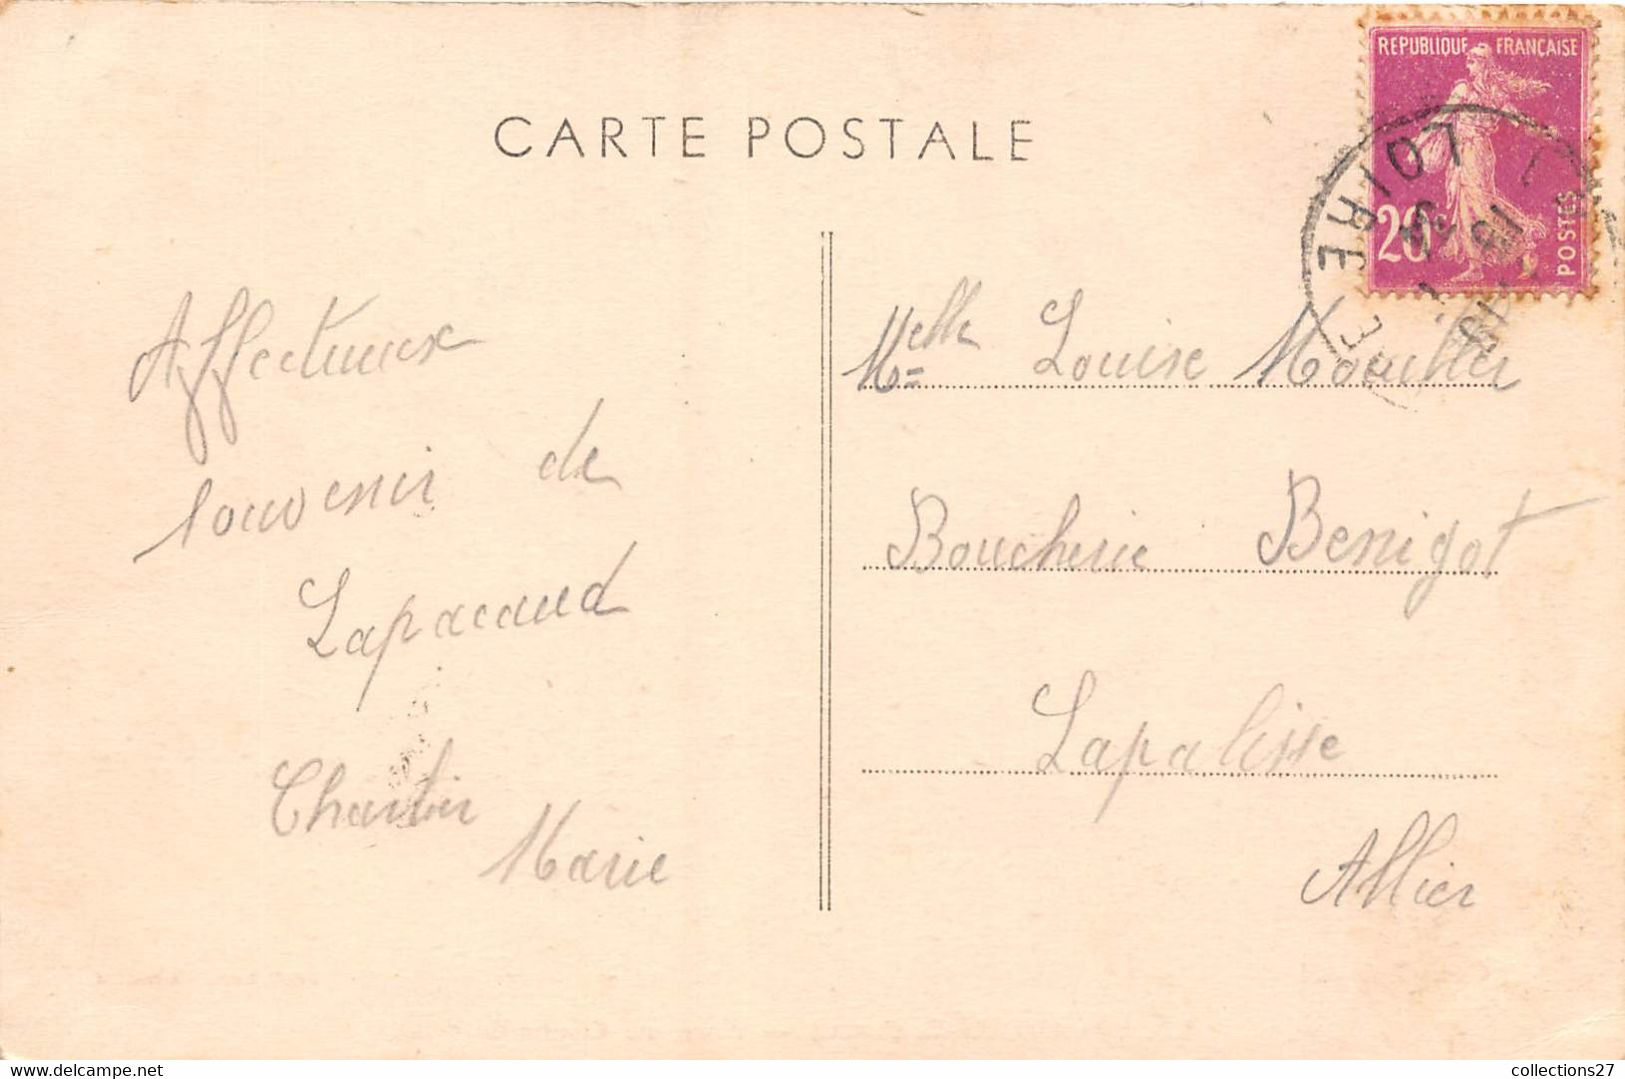 CARTE POSTALE
REPUBLIQUE FRANÇAISE
20c
POSTES
LOIRE
Affectueux
souvenir de
Lapacaud
Chartier
Marie
Melle Louise Moulller
Boucherie Benigot
Lapalisse
Allier
collections27